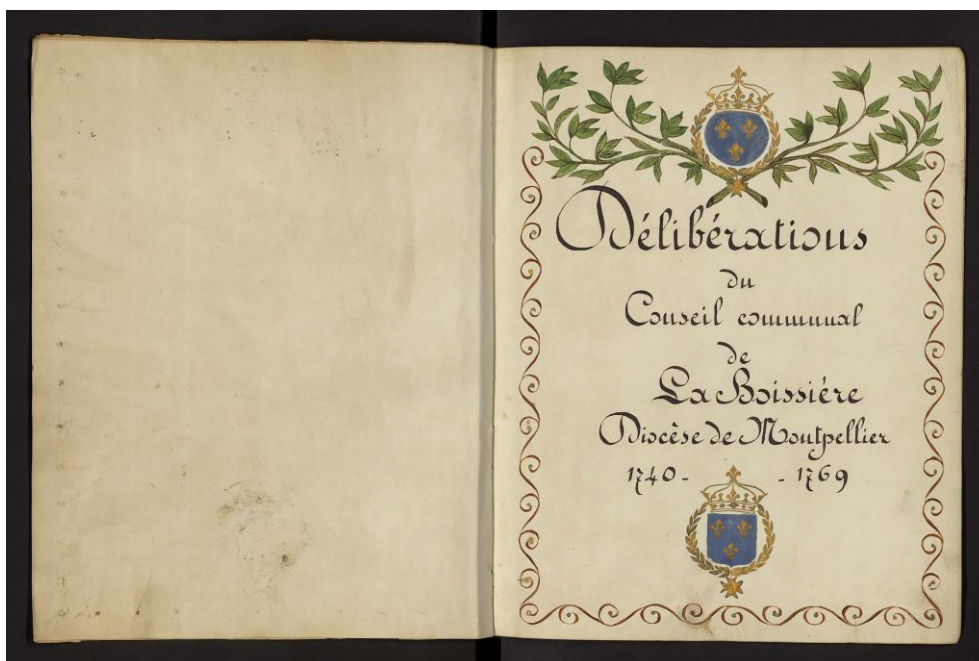 Délibérations
du
Conseil communal
de
La Boissiére
Diocèse de Montpellier
1740 - - 1769